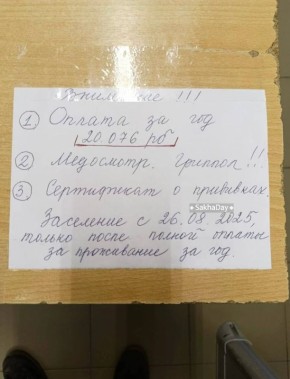 Внимание !!!
① Оплата за год
20.076 рб
② Медосмотр. Гриппол !!
③ Сертификат о прививках
*SakhaDay*
Заселение с 26.08.2025,
только после полной оплаты
за проживание за год.